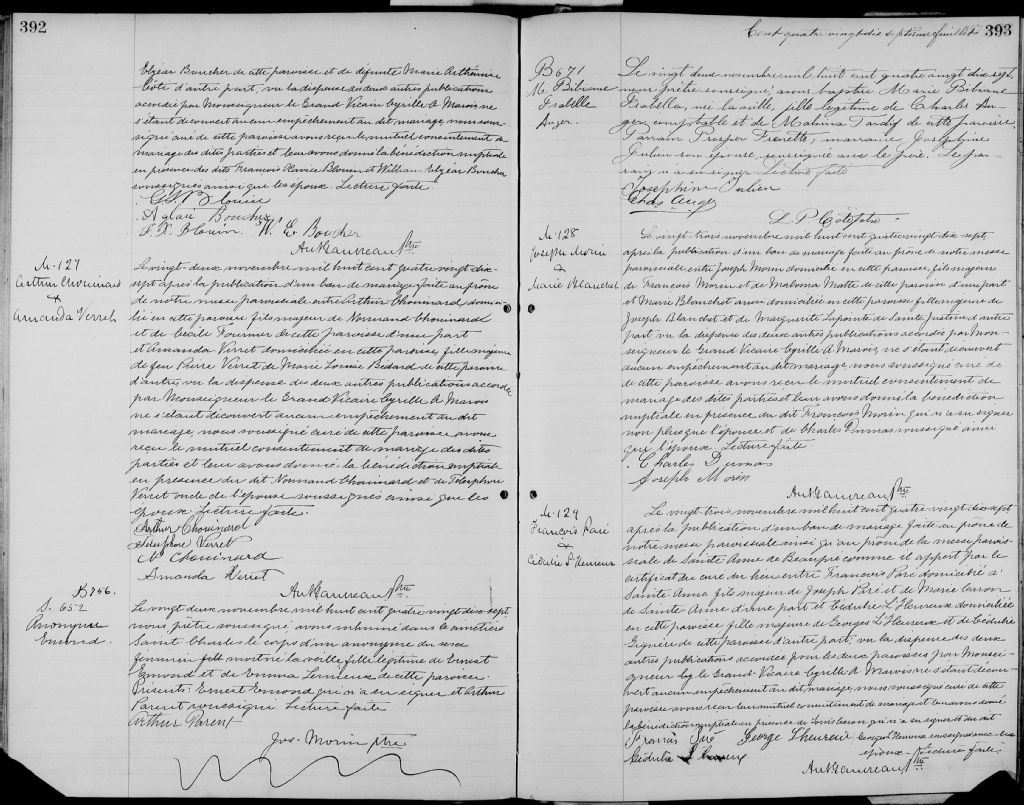 392
Elzear Boucher de cette paroisse et de défunte Marie Arthémise
Côté d'autre part, vu la dispense des deux autres publications
accordée par Monseigneur le Grand Vicaire Cyrille A Marois ne
s'étant découvert aucun empêchement au dit mariage, nous sous-
signé curé de cette paroisse avons reçu le mutuel consentement de
mariage des dites parties et leur avons donné la bénédiction nuptiale
en présence des dits François Xavier Blouin et William Elzear Boucher
soussignés ainsi que les époux. Lecture faite.
Blouin
Aglaé Boucher
F. X. Blouin. W. E. Boucher
Ant Gauvreau Ptre
M. 127
Arthur Chouinard
&
Amanda Verret
Le vingt deux novembre mil huit cent quatre vingt dix-
sept après la publication d'un ban de mariage faite au prône
de notre messe paroissiale entre Arthur Chouinard domici-
lié en cette paroisse fils majeur de Normand Chouinard
et de Cécile Fournier de cette paroisse d'une part
et Amanda Verret domiciliée en cette paroisse, fille majeure
de feu Pierre Verret de Marie Louise Bédard de cette paroisse
d'autre, vu la dispense des deux autres publications accordée
par Monseigneur le Grand Vicaire Cyrille A Marois
ne s'étant découvert aucun empêchement au dit
mariage, nous soussigné curé de cette paroisse avons
reçu le mutuel consentement de mariage des dites
parties et leur avons donné la bénédiction nuptiale
en présence du dit Normand Chouinard et de Telesphore
Verret oncle de l'épouse soussignés ainsi que les
époux Lecture faite.
Arthur Chouinard
Telesphore Verret
N. Chouinard
Amanda Verret
Ant Gauvreau Ptre
B 756.
S. 652
Anonyme
Emond.
Le vingt deux novembre mil huit cent quatre vingt dix-sept
nous prêtre soussigné, avons inhumé dans le cimetière
Saint Charles le corps d'un anonyme du sexe
féminin mort né la veille, fille légitime de Ernest
Emond et de Emma Lemieux de cette paroisse.
Présents: Ernest Emond qui n'a su signer et Arthur
Parent soussigné Lecture faite
Arthur Parent
Jos. Morin Ptre
Cent quatre vingt dix septième feuillet 393
B 671
M. Bibiane
Isabelle
Auger.
Le vingt deux novembre mil huit cent quatre vingt dix sept,
nous prêtre soussigné, avons baptisé Marie Bibiane
Isabella, née la veille, fille légitime de Charles Au-
ger, comptable et de Malvina Tardif de cette paroisse.
Parrain Prosper Frenette, marraine Joséphine
Julien son épouse, soussignée avec le père. Le par-
rain n'a su signer Lecture faite
Josephine Julien
Chas Auger
L. P. Côté Ptre
M. 128
Joseph Morin
&
Marie Blanchet
Le vingt trois novembre mil huit cent quatre vingt dix-sept,
après la publication d'un ban de mariage faite au prône de notre messe
paroissiale entre Joseph Morin domicilié en cette paroisse, fils majeur
de François Morin et de Malvina Matte de cette paroisse d'une part
et Marie Blanchet aussi domiciliée en cette paroisse fille majeure de
Joseph Blanchet et de Marguerite Lapointe de Sainte Justine d'autre
part, vu la dispense des deux autres publications accordée par Mon-
seigneur le Grand Vicaire Cyrille A Marois, ne s'étant découvert
aucun empêchement au dit mariage, nous soussigné curé de
de cette paroisse avons reçu le mutuel consentement de
mariage des dites parties et leur avons donné la bénédiction
nuptiale en présence du dit François Morin qui n'a su signer
non plus que l'épouse et de Charles Dumas soussigné ainsi
que l'époux Lecture faite
Charles Dumas
Joseph Morin
Ant Gauvreau Ptre
M. 129
François Paré
&
Cédulie L'Heureux
Le vingt-trois novembre mil huit cent quatre vingt dix sept
après la publication d'un ban de mariage faite au prône de
notre messe paroissiale ainsi qu'au prône de la messe parois-
siale de Sainte Anne de Beaupré comme il appert par le
certificat du curé du lieu entre François Paré domicilié à
Sainte Anne fils majeur de Joseph Paré et de Marie Caron
de Sainte Anne d'une part et Cédulie L'Heureux domiciliée
en cette paroisse fille majeure de Georges L'Heureux et de Cédulie
Giguère de cette paroisse d'autre part, vu la dispense des deux
autres publications accordée pour les deux paroisses par Monsei-
gneur le Grand Vicaire Cyrille A Marois ne s'étant décou-
vert aucun empêchement au dit mariage, nous soussigné curé de cette
paroisse avons reçu leur mutuel consentement de mariage et leur avons donné
la bénédiction nuptiale en présence de Louis Caron qui n'a su signer et du dit
Georges L'Heureux soussigné avec les
François Paré George Lheureux
époux. Lecture faite.
Cédulie L'heureux
Ant Gauvreau Ptre